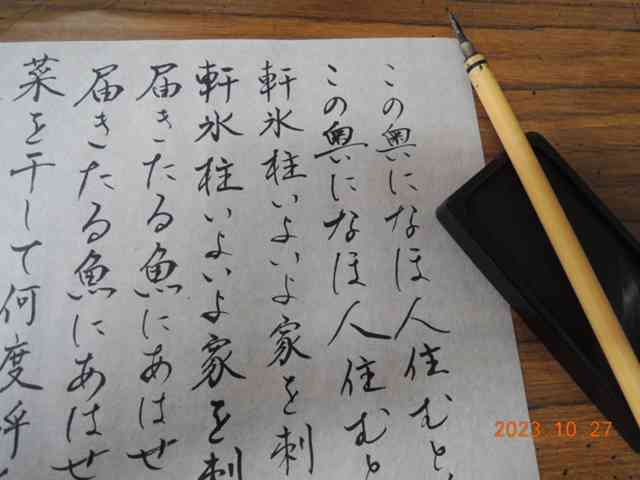 この奥になほ人住むと
この奥になほ人住むと
軒氷柱いよいよ家を刺
軒氷柱いよいよ家を刺
届きたる魚にあはせ
届きたる魚にあはせ
菜を干して何度呼
2023.10.27